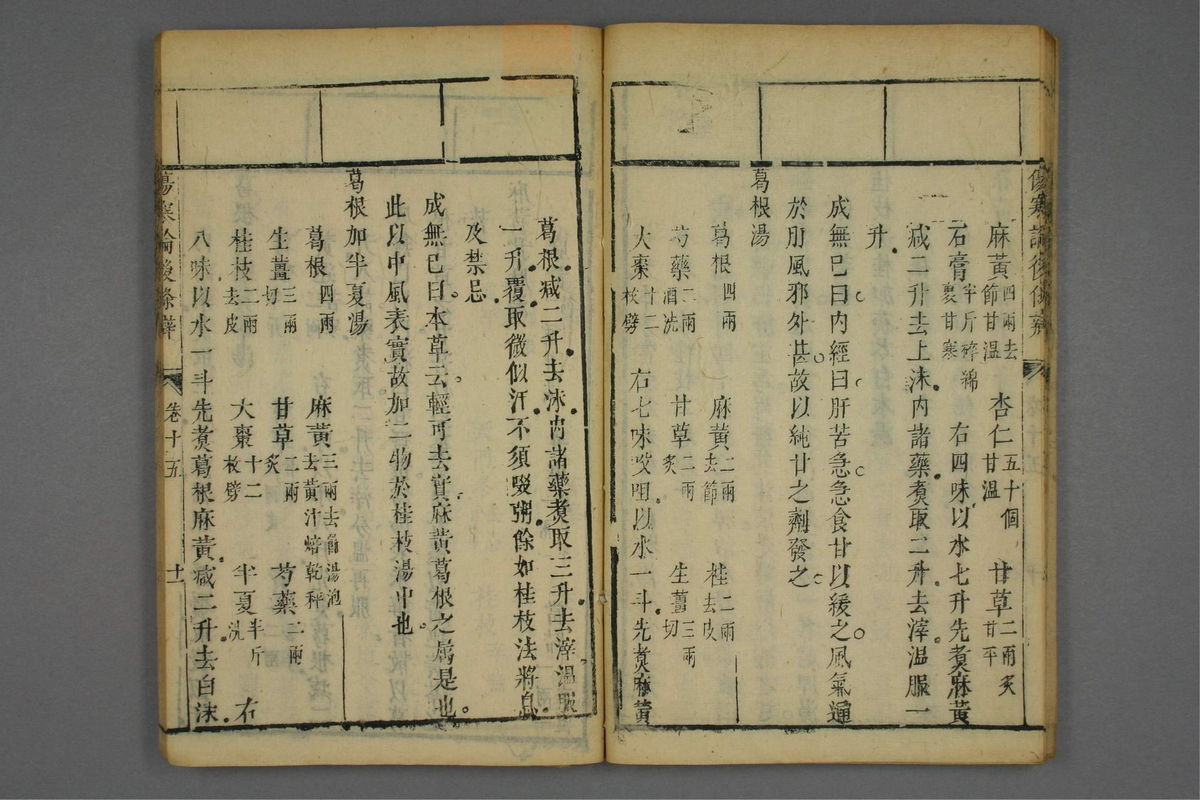 傷寒論後條辨
麻黃四兩去節甘溫 杏仁五十個甘溫 甘草二兩炙甘平
石膏半斤碎綿裹甘寒 右四味以水七升先煮麻黃
減二升去上沫內諸藥煮取二升去滓溫服一
升
成無已曰內經曰肝苦急急食甘以緩之風氣通
於肝風邪外甚故以純甘之劑發之
葛根湯
葛根四兩 麻黃二兩去節 桂二兩去皮
芍藥二兩酒洗 甘草二兩炙 生薑三兩切
大棗十二枚劈 右七味㕮咀以水一斗先煮麻黃
葛根減二升去沫內諸藥煮取三升去滓溫服
一升覆取微似汗不須啜粥餘如桂枝法將息
及禁忌
成無已曰本草云輕可去實麻黃葛根之屬是也
此以中風表實故加二物於桂枝湯中也
葛根加半夏湯
葛根四兩 麻黃三兩去節湯泡去黃汁焙乾秤
生薑三兩切 甘草二兩炙 芍藥二兩
桂枝二兩去皮 大棗十二枚劈 半夏半斤洗 右
八味以水一斗先煮葛根麻黃減二升去白沫
傷寒論後條辨 卷十五 十一